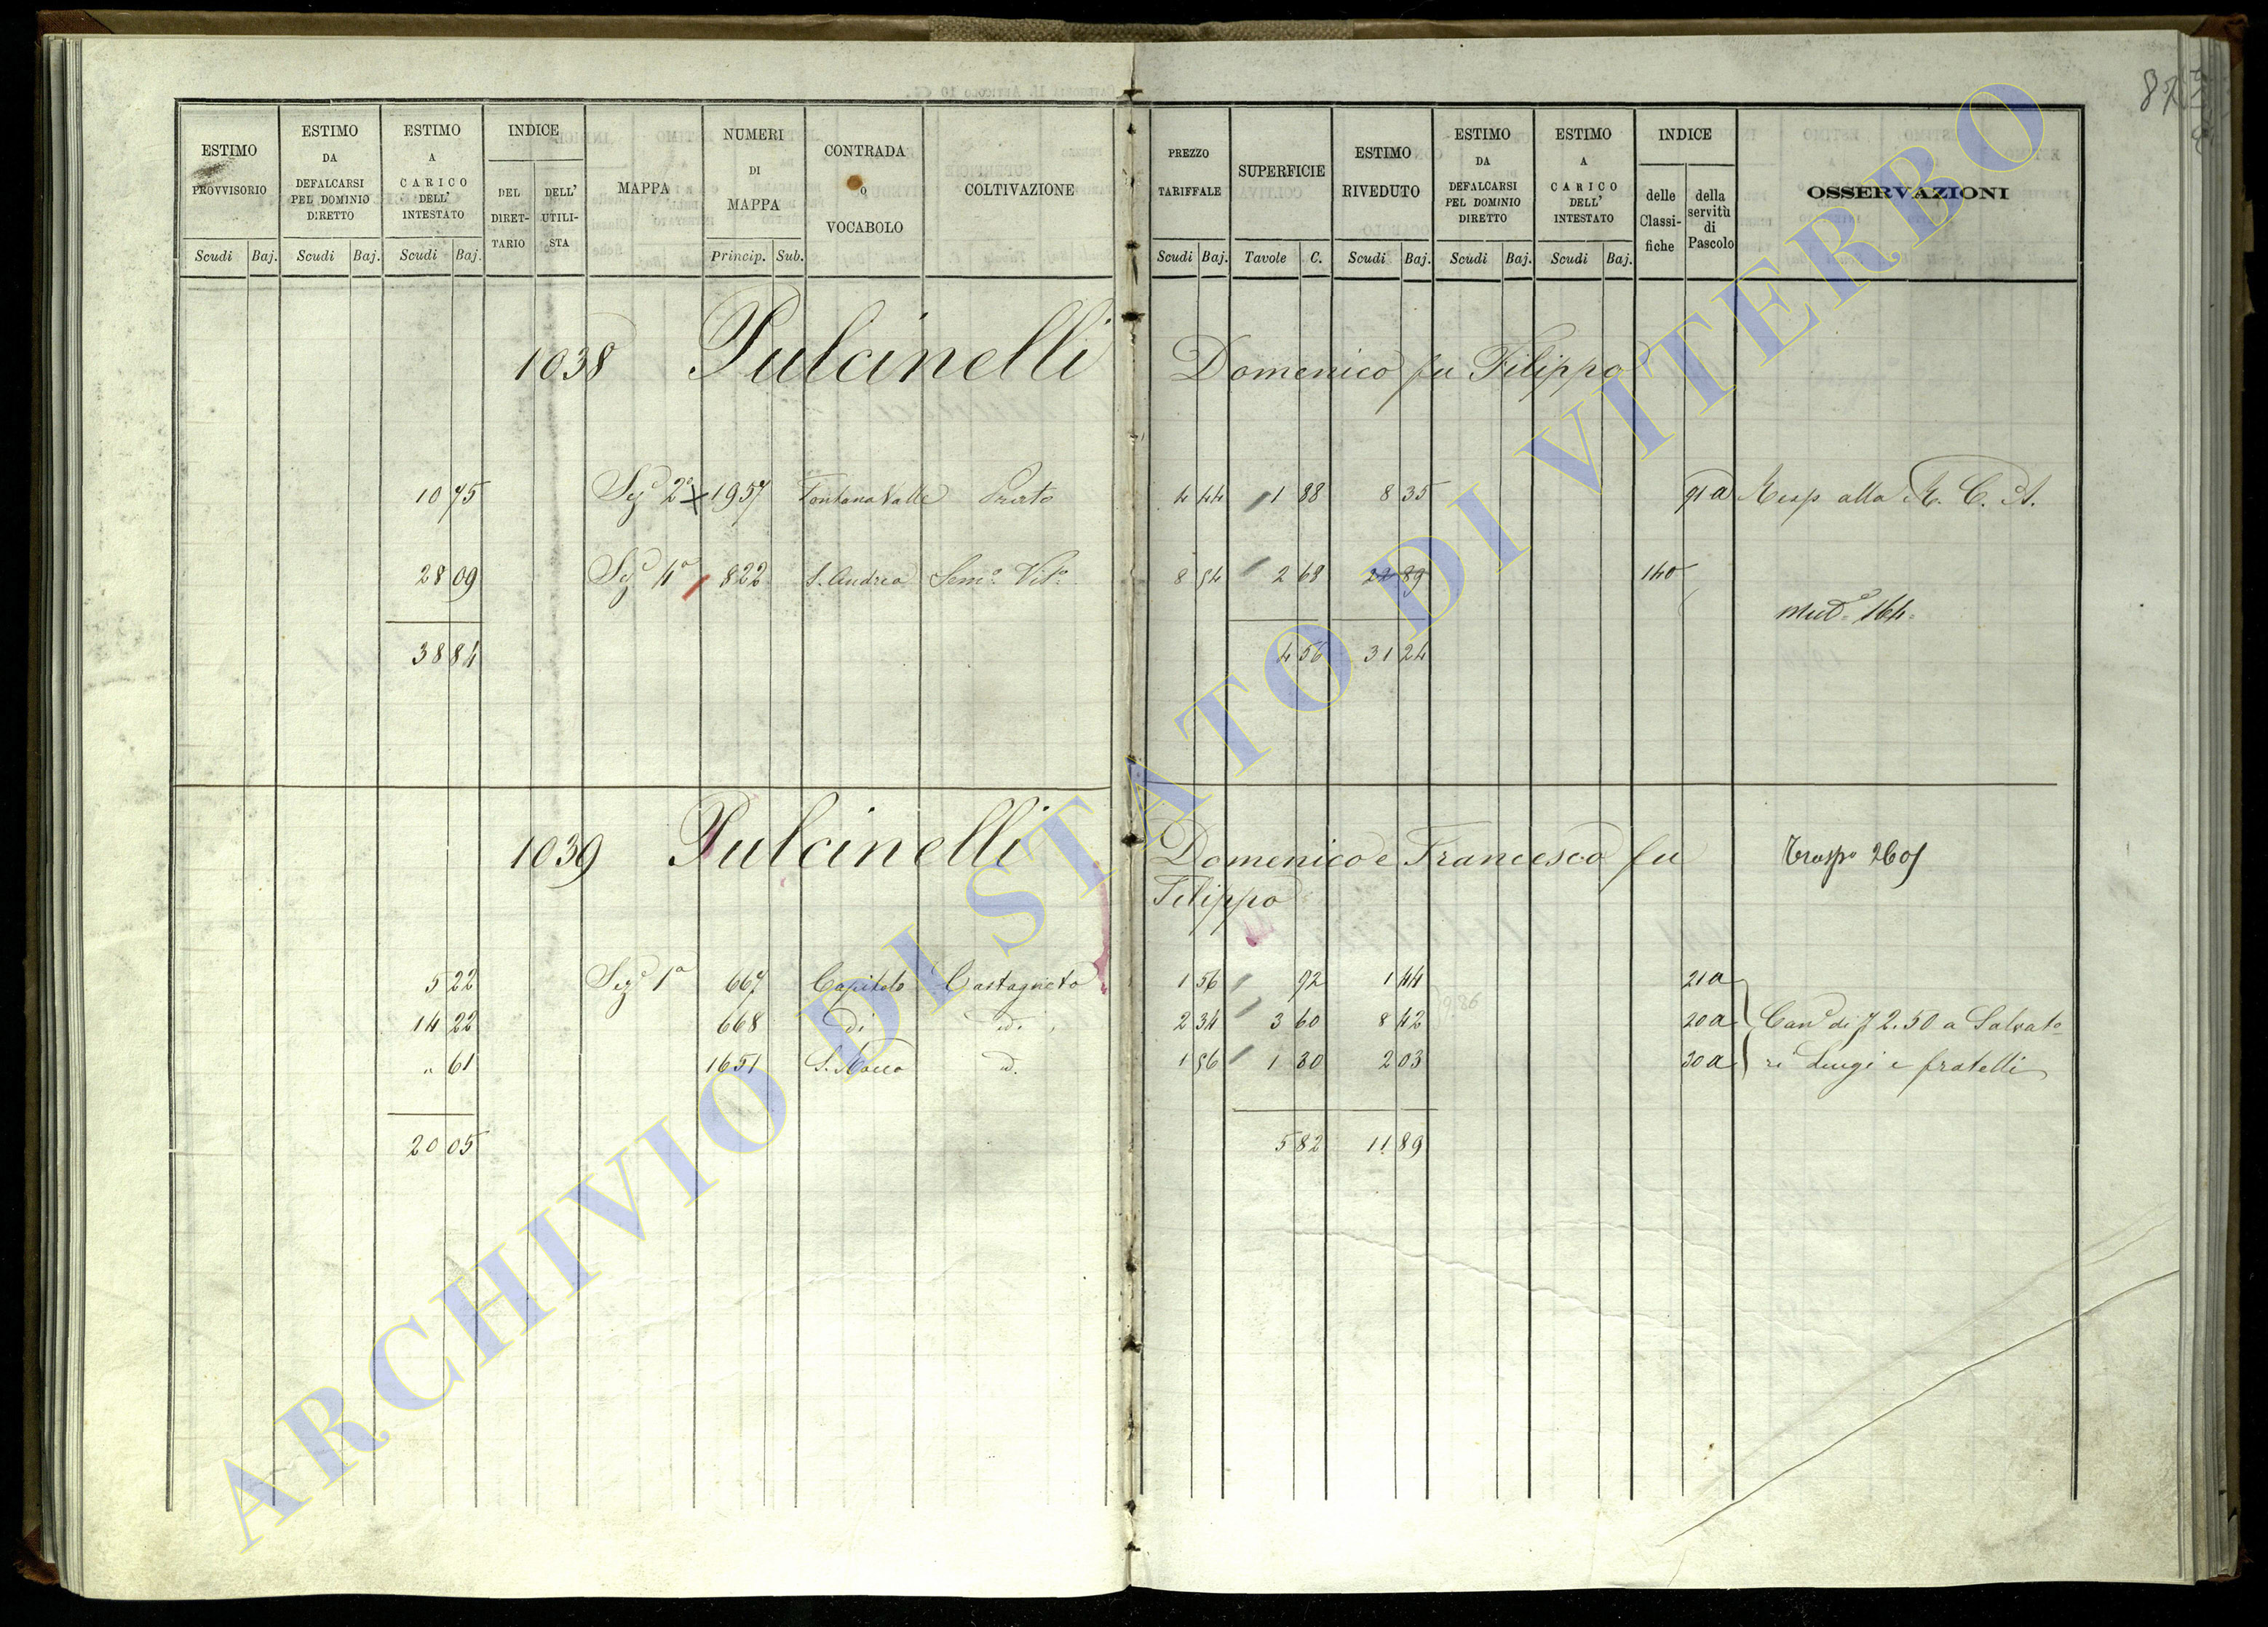 87
ESTIMO PROVVISORIO
ESTIMO DA DEFALCARSI PEL DOMINIO DIRETTO
ESTIMO A CARICO DELL' INTESTATO
INDICE
DEL DIRETTARIO
DELL' UTILISTA
MAPPA
NUMERI DI MAPPA
CONTRADA O VOCABOLO
COLTIVAZIONE
PREZZO TARIFFALE
SUPERFICIE
ESTIMO RIVEDUTO
ESTIMO DA DEFALCARSI PEL DOMINIO DIRETTO
ESTIMO A CARICO DELL' INTESTATO
INDICE
delle Classifiche
della servitù di Pascolo
OSSERVAZIONI
Scudi Baj. Scudi Baj. Scudi Baj. Princip. Sub. Scudi Baj. Tavole C. Scudi Baj. Scudi Baj. Scudi Baj.
1038 Pulcinelli Domenico fu Filippo
10 75 Sez 2a 1957 Fontana Valle Prato 4 44 1 88 8 35 91 a Resp alla R. C. A.
28 09 822 S. Andrea Semo Vito 8 54 2 68 22 89 140
164
38 84 4 56 31 24
1039 Pulcinelli Domenico e Francesco fu Filippo
5 22 Sez 1a 667 Capitolo Castagneto 1 56 92 1 44 21 a
14 22 668 di id. 2 34 3 60 8 42 20 a Cane di 2.50 a Salvato
" 61 1651 S. Rocco id. 1 56 1 30 2 03 30 a ri Luigi e fratelli
20 05 5 82 11 89
ARCHIVIO DI STATO DI VITERBO